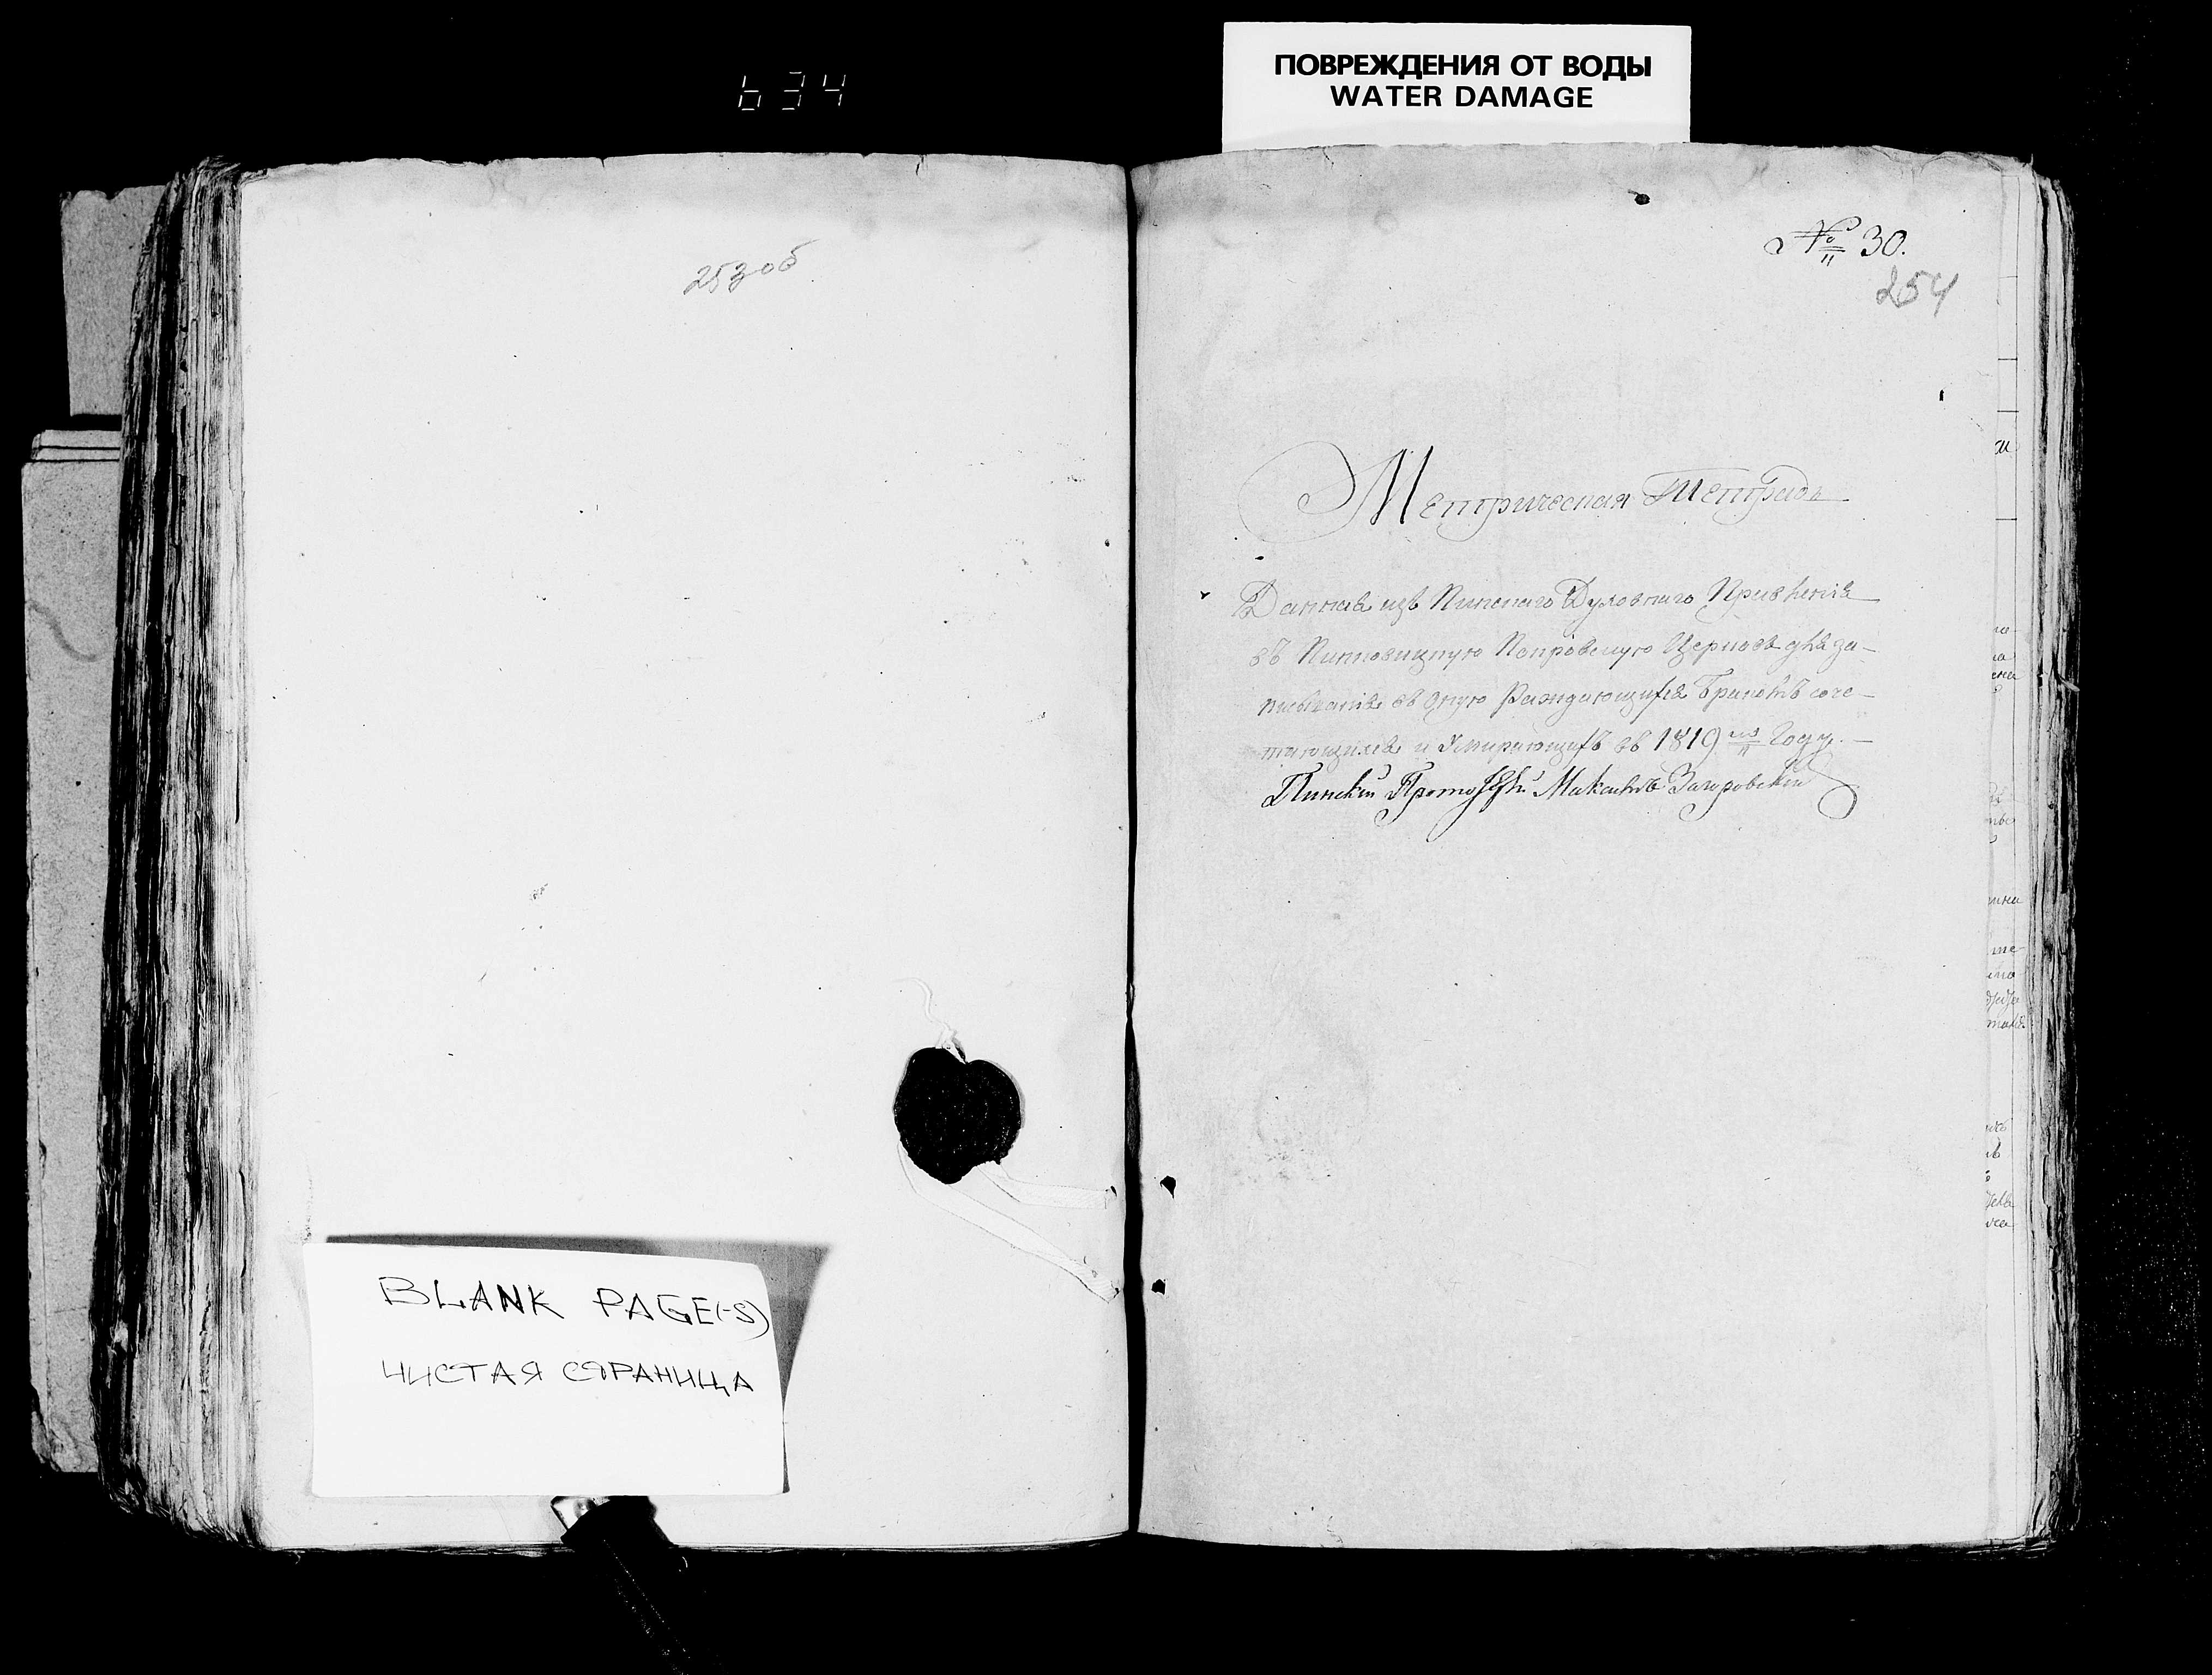 634
ПОВРЕЖДЕНИЯ ОТ ВОДЫ
WATER DAMAGE
253об
№ 30.
254
Метрическая Тетрадь
Данная изъ Пинскаго Духовнаго Правленія
въ Покровскую Церковь для за-
писыванія въ оную Раждающихся Бракомъ соче-
тающихся и Умирающихъ въ 1819 мъ Году.
Пинскій Загоровскій
BLANK PAGE(-S)
ЧИСТАЯ СТРАНИЦА